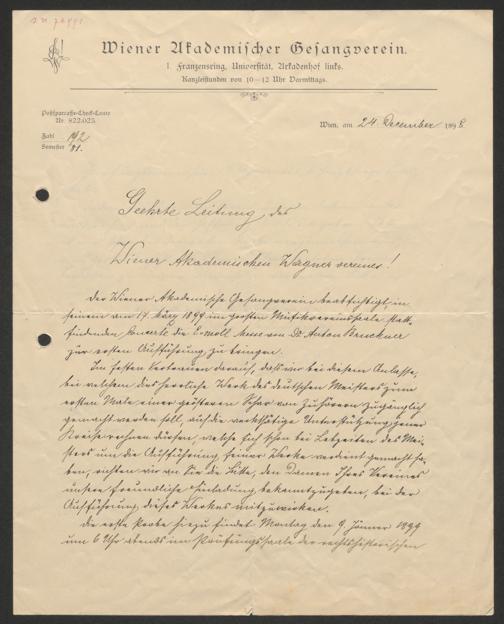 Wiener Akademischer Gesangverein.
I. Franzensring, Universität, Arkadenhof links.
Kanzleistunden von 10–12 Uhr Vormittags.
Postsparcasse-Check-Conto
Nr. 822.025.
Wien, am 24. December 1898.
Zahl 192
Semester 81.
Geehrte Leitung des
Wiener Akademischen Wagnervereines!
Der Wiener Akademische Gesangverein beabsichtigt, in
seinem am 17. März 1899 im großen Musikvereinssaale statt-
findenden Concerte die E-moll Messe von Dr. Anton Bruckner
zur ersten Aufführung zu bringen.
Im festen Vertrauen darauf, dass wir bei diesem Anlasse,
bei welchem das herrliche Werk des deutschen Meisters zum
ersten Male einer größeren Schar von Zuhörern zugänglich
gemacht werden soll, auf die werkthätige Unterstützung jener
Kreise rechnen dürfen, welche sich schon bei Lebzeiten des Mei-
sters um die Aufführung seiner Werke verdient gemacht ha-
ben, richten wir an Sie die Bitte, den Damen Ihres Vereines
unsere freundliche Einladung bekanntzugeben, bei der
Aufführung dieses Werkes mitzuwirken.
Die erste Probe hiezu findet Montag den 9. Jänner 1899
um 6 Uhr abends im Prüfungssaale der rechtshistorischen